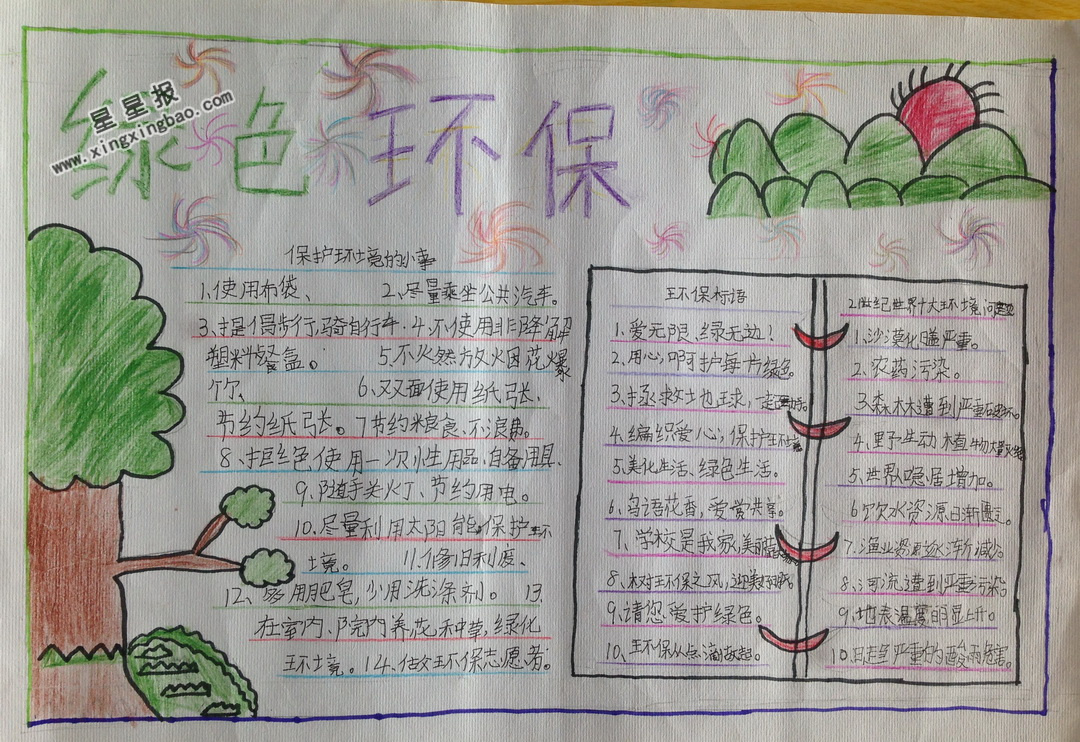 绿色环保
星星报
www.xingxingbao.com
保护环境的小事
1、使用布袋、 2、尽量乘坐公共汽车。
3、提倡步行,骑自行车。4、不使用非降解
塑料餐盒。 5、不火然放火因花爆
竹、 6、双面使用纸张、
节约纸张。7节约粮食、不浪费。
8、拒绝使用一次性用品、自备用具、
9、随手关火丁、节约用电。
10、尽量利用太阳能、保护环
境。 11、修旧利废、
12、多用肥皂,少用洗涤剂。 13、
在室内、院内养花种草,绿化
环境。14、做环保志愿者。
环保标语
1、爱无限、绿无边!
2、用心呵护每片绿色。
3、拯救地球,
4、编织爱心,保护环境。
5、美化生活、绿色生活。
6、鸟语花香,爱赏共享。
7、学校是我家,美丽
8、树环保之风,迎美好
9、请您爱护绿色。
10、环保从点滴做起。
世纪世界十大环境问题
1、沙漠化日趋严重。
2、农药污染。
3、森林遭到严重破坏。
4、野生动植物大量
5、世界隐居增加。
6、饮水资源日渐匮乏。
7、渔业资源逐渐减少。
8、河流遭到严重污染。
9、地表温度明显上升。
10、日趋严重的酸雨危害。